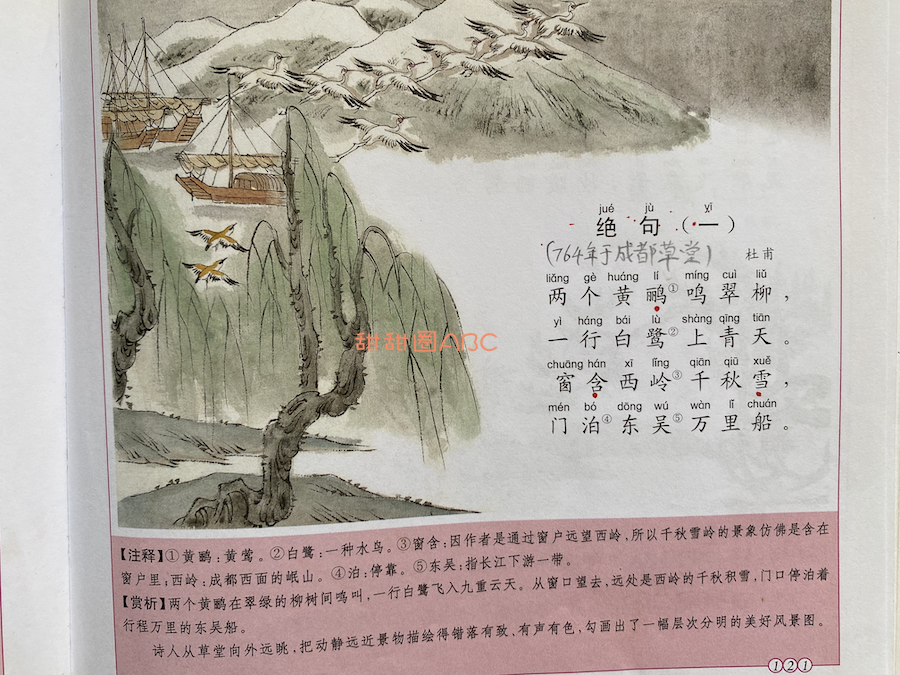 jué jù yī
绝句（一）
（764年于成都草堂） 杜甫
liǎng gè huáng lí míng cuì liǔ
两个黄鹂①鸣翠柳，
yì háng bái lù shàng qīng tiān
一行白鹭②上青天。
chuāng hán xī lǐng qiān qiū xuě
窗含西岭③千秋雪，
mén bó dōng wú wàn lǐ chuán
门泊④东吴⑤万里船。
甜甜圈ABC
【注释】①黄鹂：黄莺。②白鹭：一种水鸟。③窗含：因作者是通过窗户远望西岭，所以千秋雪岭的景象仿佛是含在
窗户里；西岭：成都西面的岷山。④泊：停靠。⑤东吴：指长江下游一带。
【赏析】两个黄鹂在翠绿的柳树间鸣叫，一行白鹭飞入九重云天。从窗口望去，远处是西岭的千秋积雪，门口停泊着
行程万里的东吴船。
诗人从草堂向外远眺，把动静远近景物描绘得错落有致、有声有色，勾画出了一幅层次分明的美好风景图。
①②①